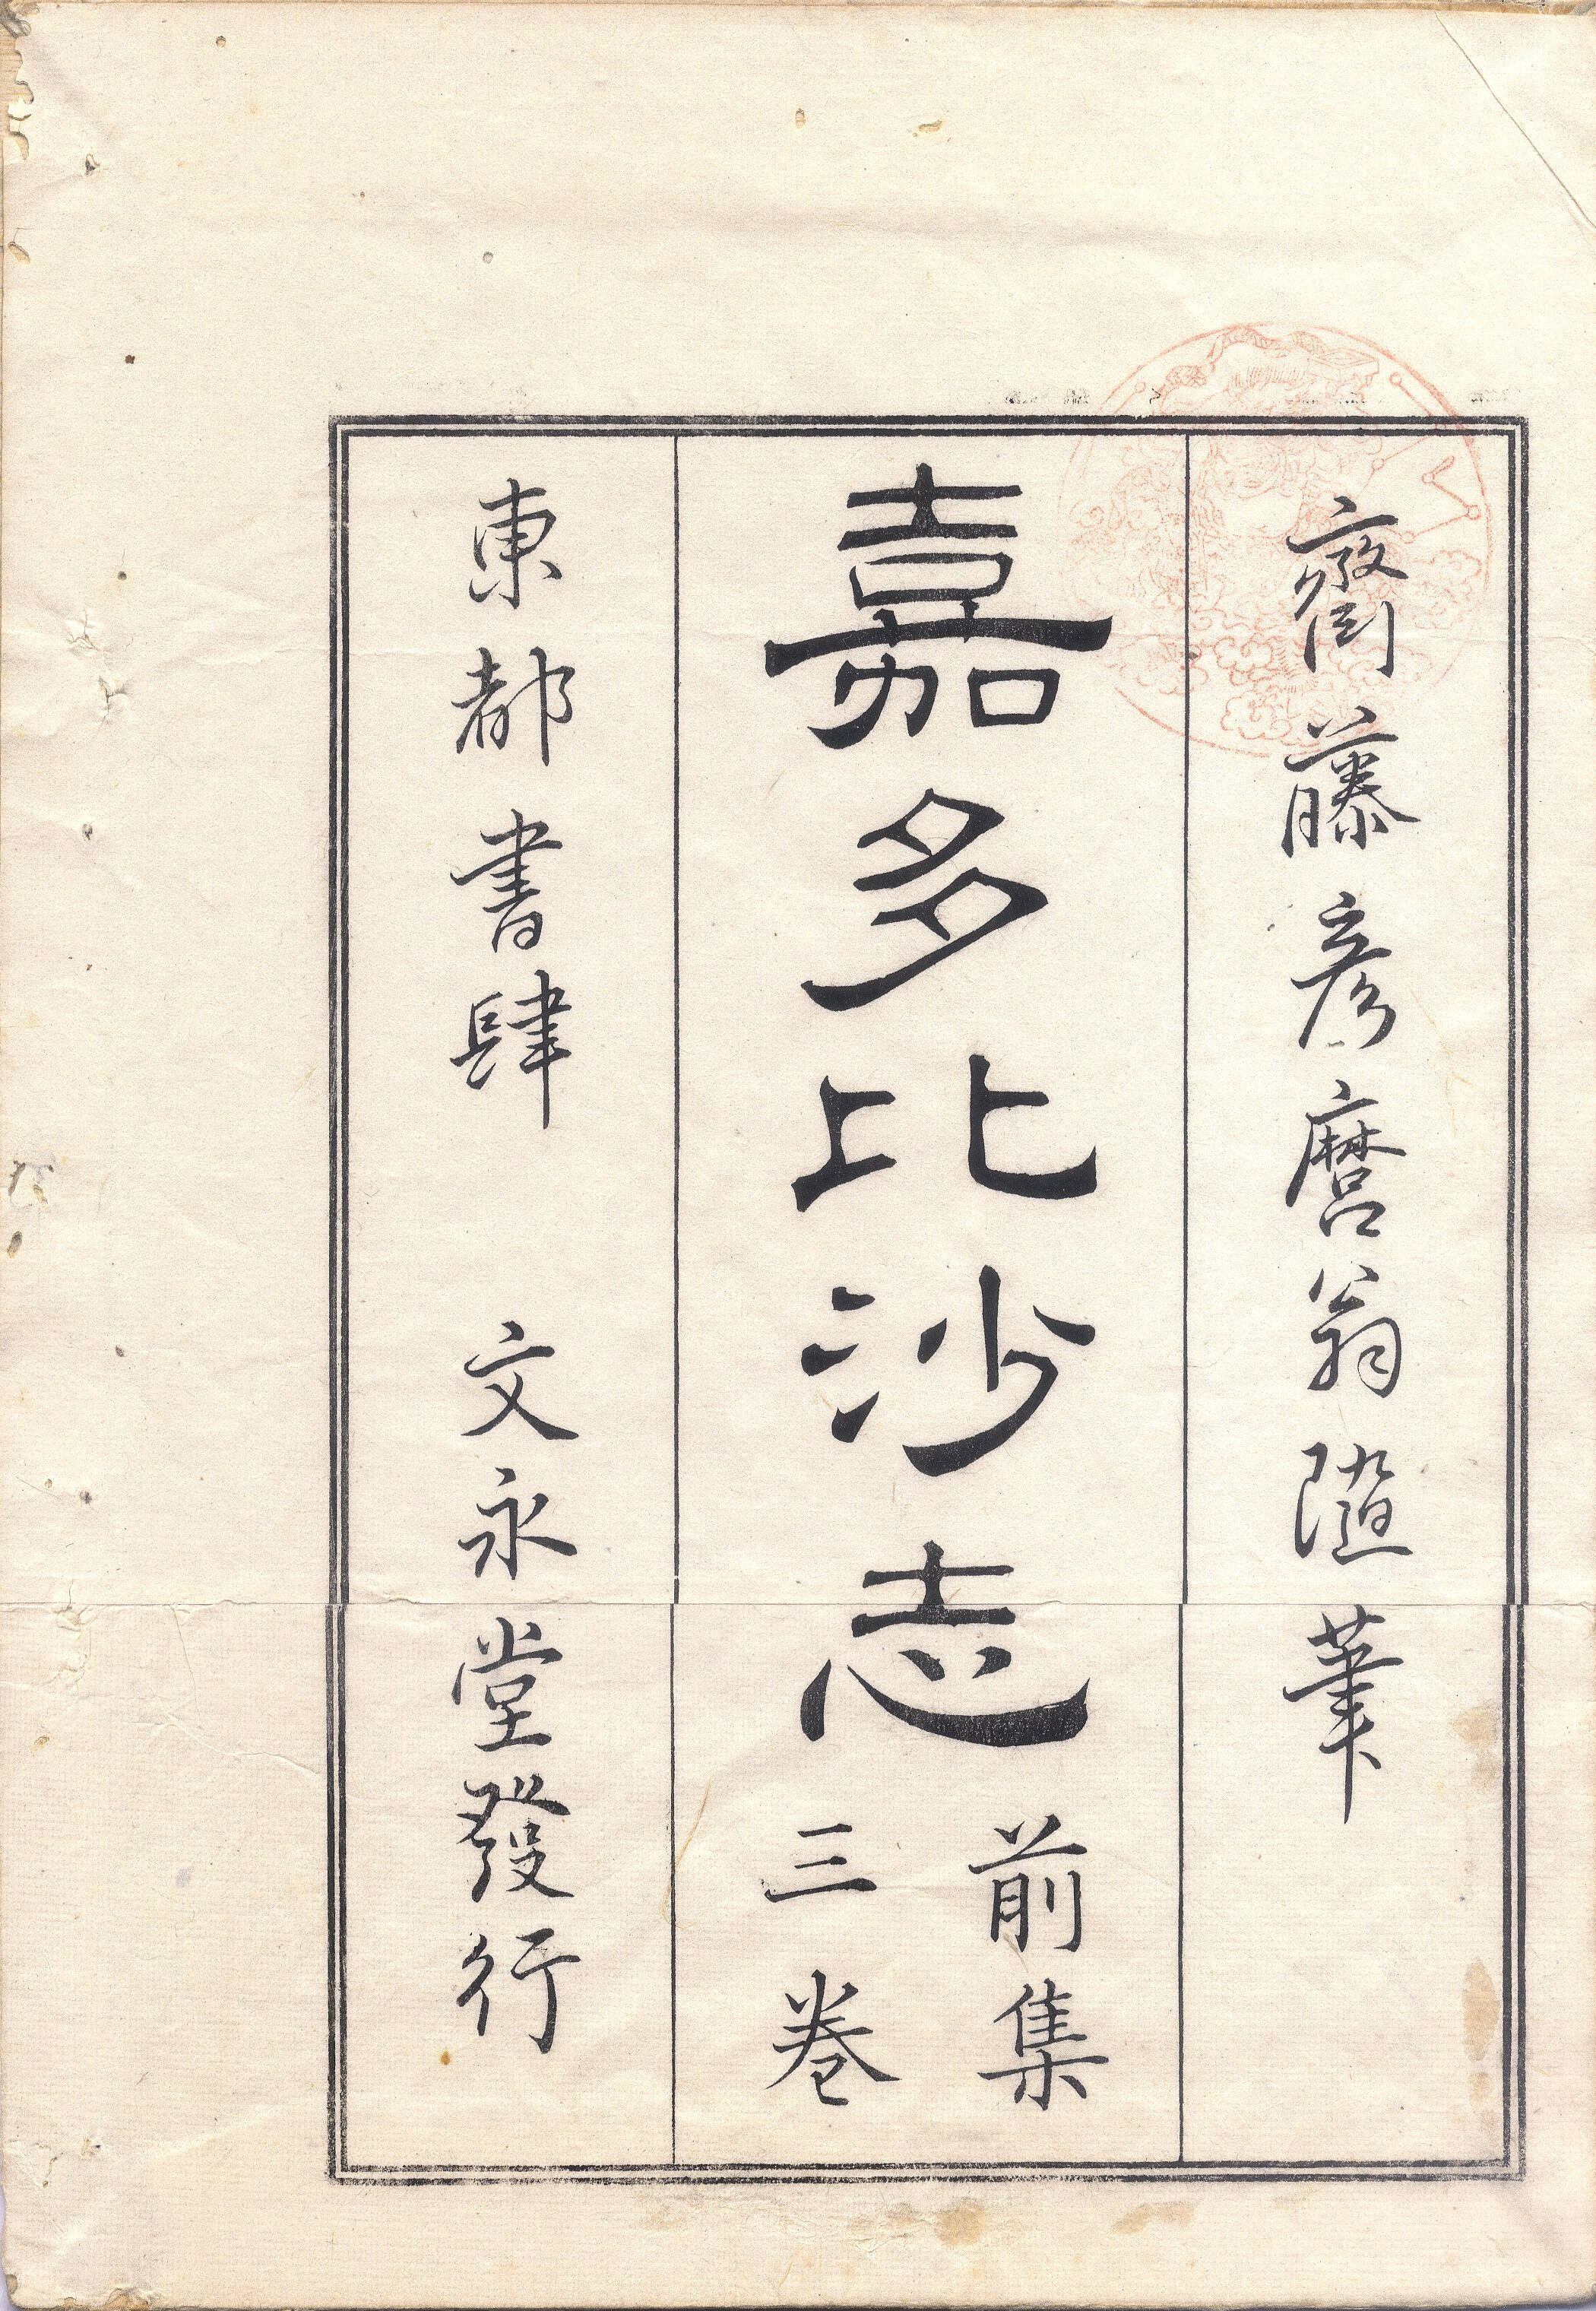 齋藤彦麿翁隨筆
嘉多比沙志
前集
三卷
東都書肆 文永堂發行